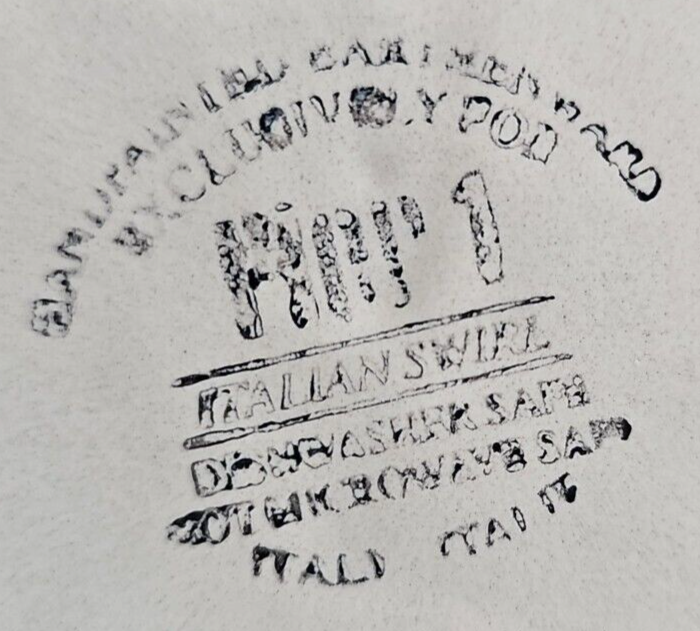 HANDPAINTED EARTHENWARE
EXCLUSIVELY FOR
Pier 1
ITALIAN SWIRL
DISHWASHER SAFE
NOT MICROWAVE SAFE
ITALY ITALIE